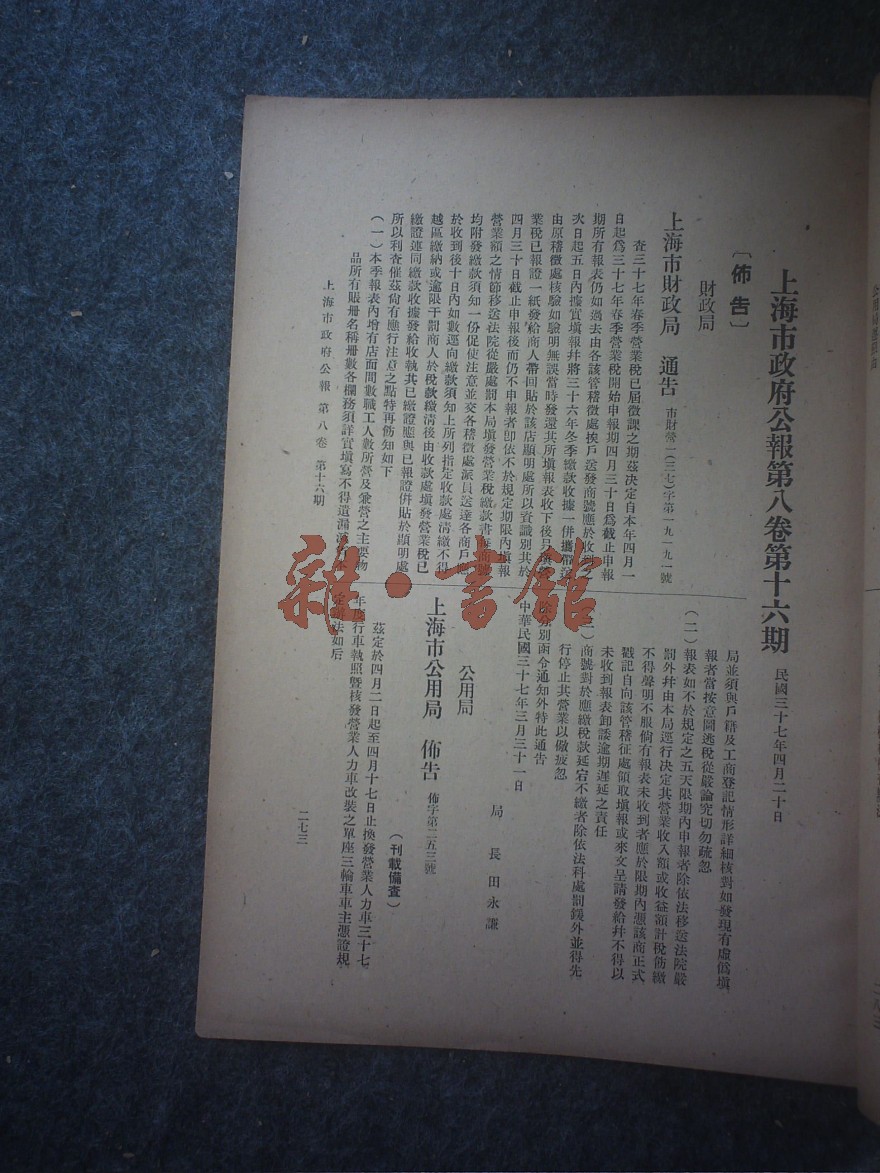 上海市政府公報第八卷第十六期
民國三十七年四月二十日
〔佈告〕
財政局
上海市財政局 通告 市財營一(三七)字第一九一九一號
查三十七年春季營業稅已屆徵課之期茲決定自本年四月一
日起為三十七年春季營業稅開始申報期四月三十日為截止申報
期所有報表仍如過去由各該管稽徵處挨戶送發商號應於收到之
次日起五日內據實填報幷將三十六年冬季繳款收據一併攜帶送
由原稽徵處核驗如驗明無誤當時發還其所填報表收下後另填營
業稅已報證一紙發給商人帶回貼於該店顯明處所以資識別其於
四月三十日截止申報後而仍不申報者卽依不於規定期限內填報
營業額之情節移送法院從嚴處罰本局填發營業稅繳款書每商號
均附發繳款須知一份促使注意並交各稽徵處派員送達各商戶應
於收到後十日內如數逕向繳款須知上所列指定收款處清繳不得
越區繳納或逾限干罰商人於稅款繳清後由收款處填發營業稅已
繳證連同繳款收據發給收執其已繳證應與已報證併貼於顯明處
所以利查催茲尙有應行注意之點特再飭知如下
(一)本季報表內增有店面間數職工人數所營及兼營之主要物
品所有賬册名稱册數各欄務須詳實填寫不得遺漏
局並須與戶籍及工商登記情形詳細核對如發現有虛僞塡
報者當按意圖逃稅從嚴論究切勿疏忽
(二)報表如不於規定之五天限期內申報者除依法移送法院嚴
罰外幷由本局逕行決定其營業收入額或收益額計稅飭繳
不得聲明不服倘有報表未收到者應於限期內憑該商正式
戳記自向該管稽征處領取填報或來文呈請發給幷不得以
未收到報表卸諉逾期遲延之責任
(三)商號對於應繳稅款延宕不繳者除依法科處罰鍰外並得先
行停止其營業以儆疲忽
除分別函令通知外特此通告
中華民國三十七年三月三十一日
局 長 田 永 謙
公用局
上海市公用局 佈告 佈字第二五三號
(刊載備查)
茲定於四月二日起至四月十七日止換發營業人力車三十七
年度行車執照暨核發營業人力車改裝之單座三輪車車主憑證規
定辦法如后
上海市政府公報 第八卷 第十六期
二七三
雜·書館